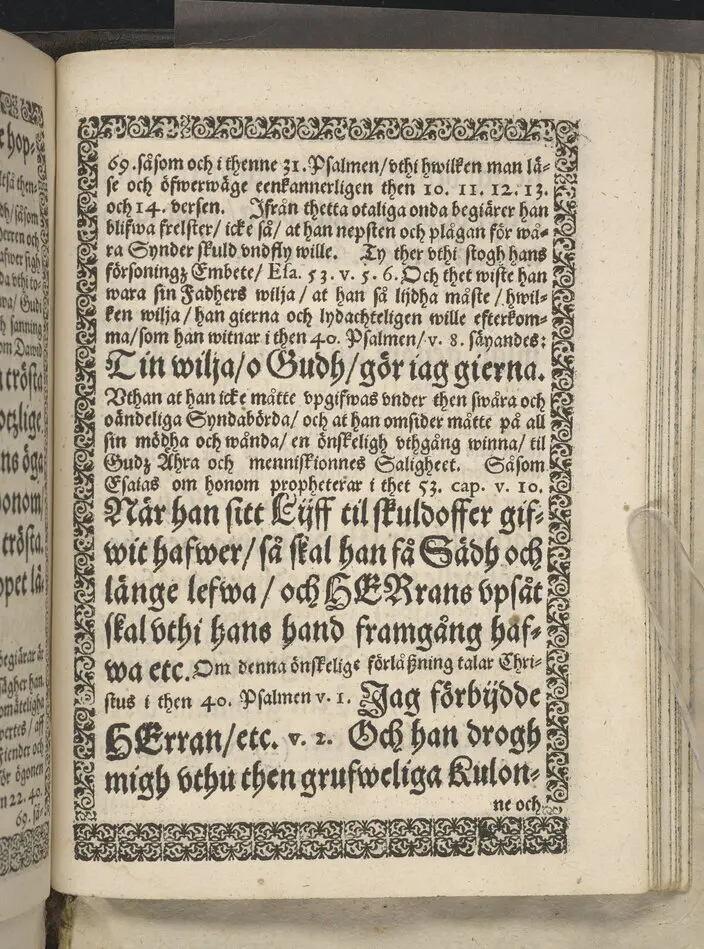 e hop-
lesa then-
dh/såsom
herren och
afwer sigh
wa/ Gudz
h sanning
om Dawid
trösta
otzlige
ns öga
honom
trösta.
opet lä-
begiärar är
sägher han
om åteligha
wertes/ aff
Fiender och
för ögonen
n 22. 40.
69. så-
69. såsom och i thenne 31. Psalmen/vthi hwilken man lä-
se och öfwerwäge eenkannerligen then 10. 11. 12. 13.
och 14. versen. Ifrån thetta otaliga onda begiärer han
blifwa frelster/ icke så/ at han nepsten och plågan för wå-
ra Synder skuld vndfly wille. Ty ther vthi stogh hans
försoningz Embete/ Esa. 53. v. 5. 6. Och thet wiste han
wara sin Fadhers wilja/ at han så lijdha måste/ hwil-
ken wilja/ han gierna och lydachteligen wille efterkom-
ma/som han witnar i then 40. Psalmen/ v. 8. säyandes:
Tin wilja/o Gudh/gör iag gierna.
Vthan at han icke måtte vpgifwas vnder then swåra och
oändeliga Syndabörda/ och at han omsider måtte på all
sin mödha och wånda/ en önskeligh vthgång winna/ til
Gudz Ähra och menniskionnes Saligheet. Såsom
Esaias om honom propheterar i thet 53. cap. v. 10.
När han sitt Lijff til skuldoffer gif-
wit hafwer/ så skal han få Sädh och
länge lefwa/ och HERrans vpsåt
skal vthi hans hand framgång haf-
wa etc. Om denna önskelige förlåßning talar Chri-
stus i then 40. Psalmen v. 1. Jag förbijdde
HErran/etc. v. 2. Och han drogh
migh vthu then grufweliga Kulon-
ne och